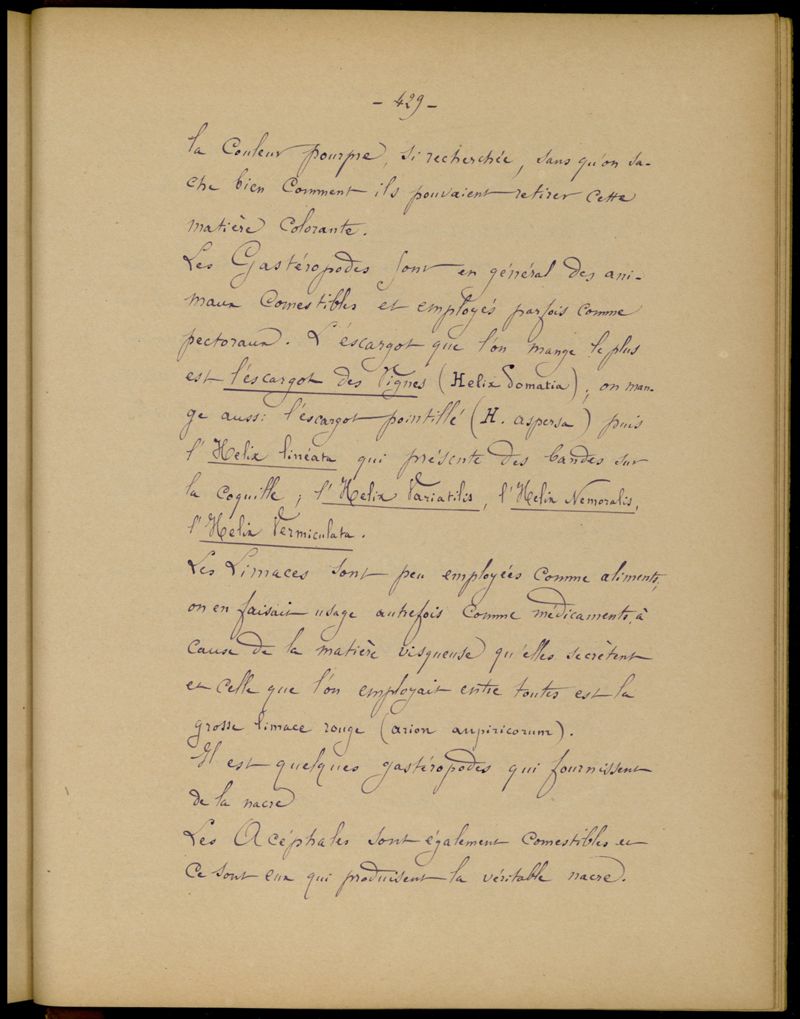 - 429 -
la Couleur pourpre, si recherchée, sans qu'on sa-
che bien Comment ils pouvaient retirer cette
matière Colorante.
Les Gastéropodes sont en général des ani-
maux Comestibles et employés parfois comme
pectoraux. L'escargot que l'on mange le plus
est l'escargot des Vignes (Helix Pomatia), on man-
ge aussi l'escargot pointillé (H. aspersa) puis
l'Helix linéata qui présente des bandes sur
la coquille ; l'Helix Variatilis, l'Helix Nemoralis,
l'Helix Vermiculata.
Les Limaces sont peu employées comme aliments,
on en faisait usage autrefois comme médicaments, à
cause de la matière visqueuse qu'elles secrètent
et celle que l'on employait entre toutes est la
grosse limace rouge (arion anpiricorum).
Il est quelques gastéropodes qui fournissent
de la nacre
Les Acéphales sont également comestibles et
Ce sont eux qui produisent la véritable nacre.